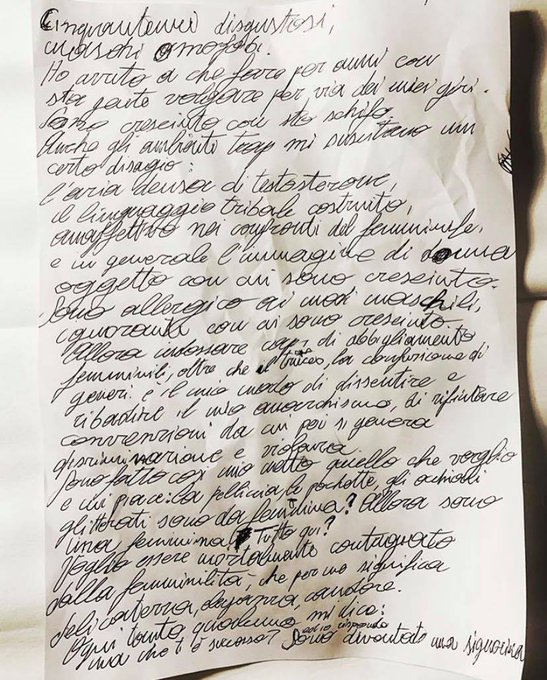 Cinquantenni disgustosi,
maschi omofobi.
Ho avuto a che fare per anni con
sta gente volgare per via dei miei giri.
Sono cresciuto con sto schifo
Anche gli ambienti trap mi suscitano un
certo disagio:
l'aria densa di testosterone,
il linguaggio tribale costruito,
anaffettivo nei confronti del femminile,
e in generale l'immagine di donna
oggetto con cui sono cresciuto.
Sono allergico ai modi maschili,
ignoranti con cui sono cresciuto
Allora indossare capi di abbigliamento
femminili, oltre che il trucco, la confusione di
generi è il mio modo di dissentire e
ribadire il mio anarchismo, di rifiutare
convenzioni da cui poi si genera
discriminazione e violenza.
Sono fatto così mi metto quello che voglio
e mi piace: la pelliccia, le pochette, gli occhiali
glitterati sono da femmina? Allora sono
una femmina. Tutto qui?
Voglio essere mortalmente contagiato
dalla femminilità, che per me significa
delicatezza, eleganza, candore.
Ogni tanto, qualcuno mi dice:
ma che ti è successo? ed io rispondo Sono diventato una signorina